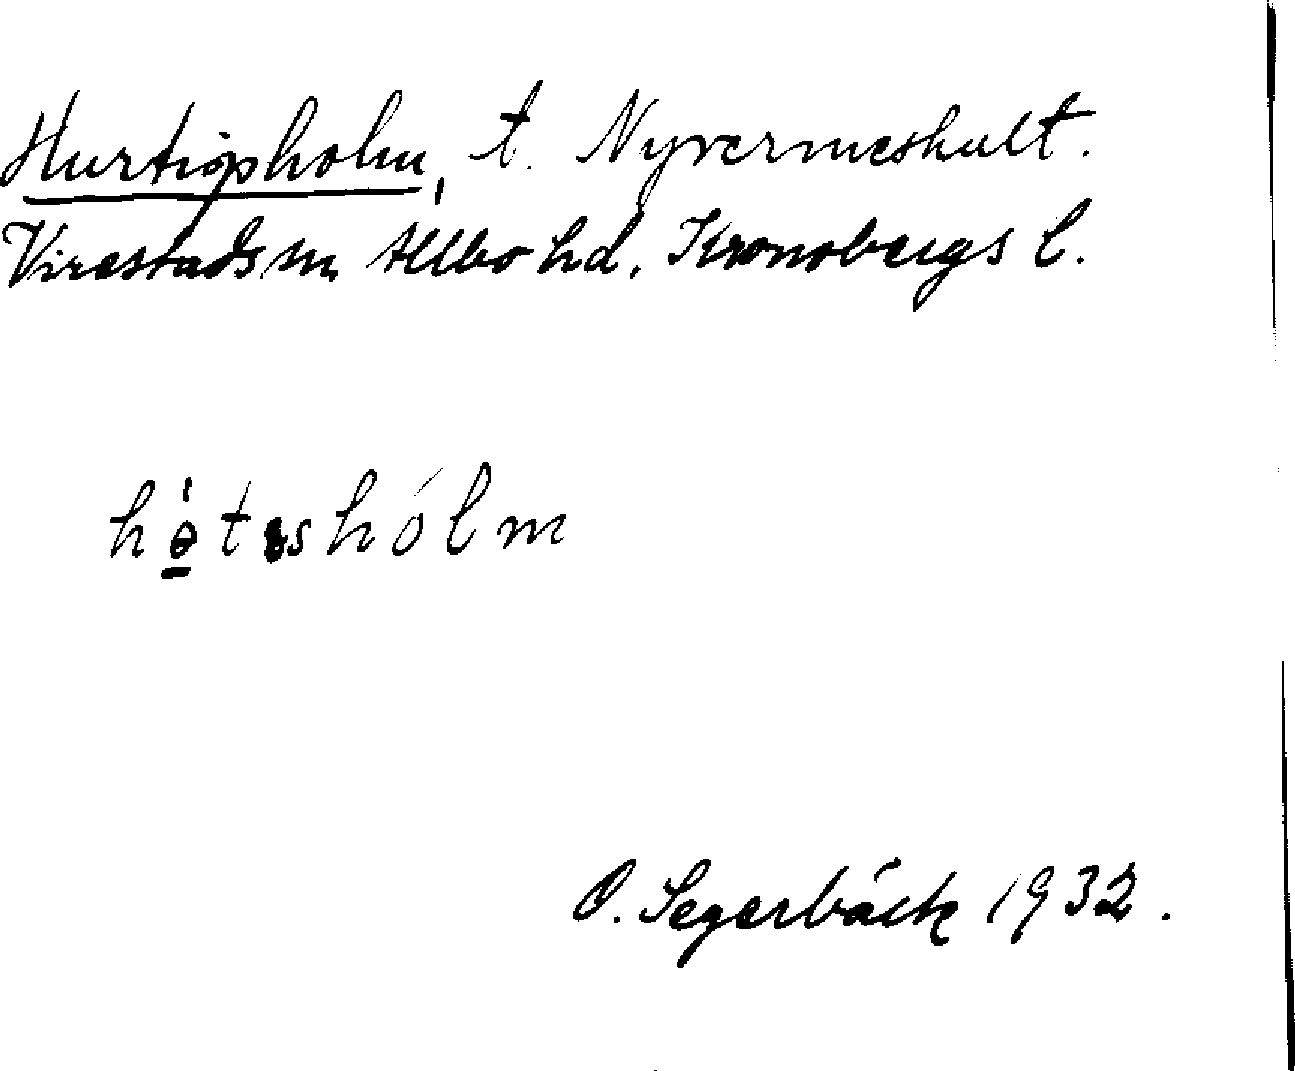 Hurtigsholm, t. Nyvermeshult.
Virestads sn, Allbo hd, Kronobergs l.
hɵ̀tsshólm
O. Segerbäck 1932.